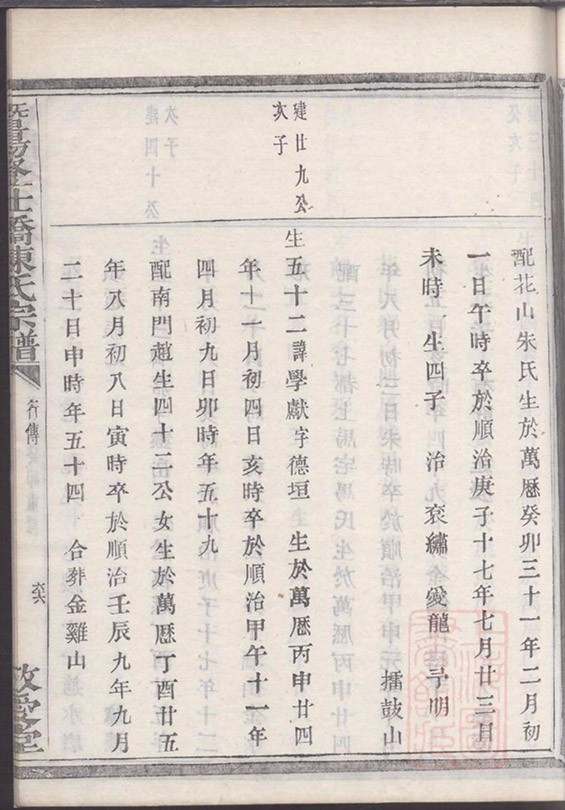 配花山朱氏生於萬曆癸卯三十一年二月初
一日午時卒於順治庚子十七年七月廿三日
未時 生四子 治 袞繡 愛龍 明 擂鼓山
建廿九公
次子
生五十二諱學獻字德垣 生於萬曆丙申廿四
年十一月初四日亥時卒於順治甲午十一年
四月初九日卯時年五十九
配南門趙生四十二公女生於萬曆丁酉廿五
年八月初八日寅時卒於順治壬辰九年九月
二十日申時年五十四 合葬金雞山
暨陽 橋陳氏宗譜
行傳
敬愛堂